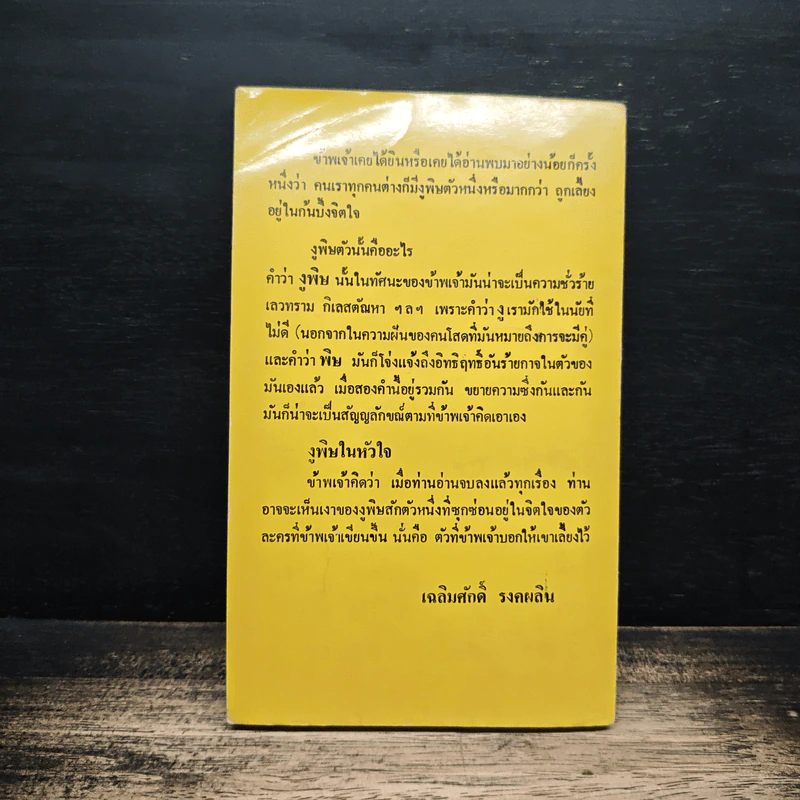 ข้าพเจ้าเคยได้ยินหรือเคยได้อ่านพบมาอย่างน้อยก็ครั้ง
หนึ่งว่า คนเราทุกคนต่างก็มีงูพิษตัวหนึ่งหรือมากกว่า ถูกเลี้ยง
อยู่ในก้นบึ้งจิตใจ
งูพิษตัวนั้นคืออะไร
คำว่า งูพิษ นั้นในทัศนะของข้าพเจ้ามันน่าจะเป็นความชั่วร้าย
เลวทราม กิเลสตัณหา ฯลฯ เพราะคำว่า งู เรามักใช้ในนัยที่
ไม่ดี (นอกจากในความฝันของคนโสดที่มันหมายถึงการจะมีคู่)
และคำว่า พิษ มันก็โจ่งแจ้งถึงอิทธิฤทธิ์อันร้ายกาจในตัวของ
มันเองแล้ว เมื่อสองคำนี้อยู่รวมกัน ขยายความซึ่งกันและกัน
มันก็น่าจะเป็นสัญญลักษณ์ตามที่ข้าพเจ้าคิดเอาเอง
งูพิษในหัวใจ
ข้าพเจ้าคิดว่า เมื่อท่านอ่านจบลงแล้วทุกเรื่อง ท่าน
อาจจะเห็นเงาของงูพิษสักตัวหนึ่งที่ซุกซ่อนอยู่ในจิตใจของตัว
ละครที่ข้าพเจ้าเขียนขึ้น นั่นคือ ตัวที่ข้าพเจ้าบอกให้เขาเลี้ยงไว้
เฉลิมศักดิ์ รงคผลิน